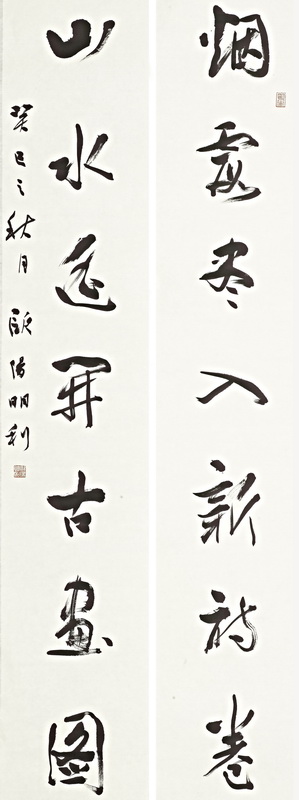 烟霞尽入新诗卷
山水开古畫图
癸巳之秋月 欧陽明利